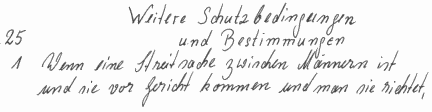 Weitere Schutzbedingungen
25 und Bestimmungen
1 Wenn eine Streitsache zwischen Männern ist
und sie vor Gericht kommen und man sie richtet,